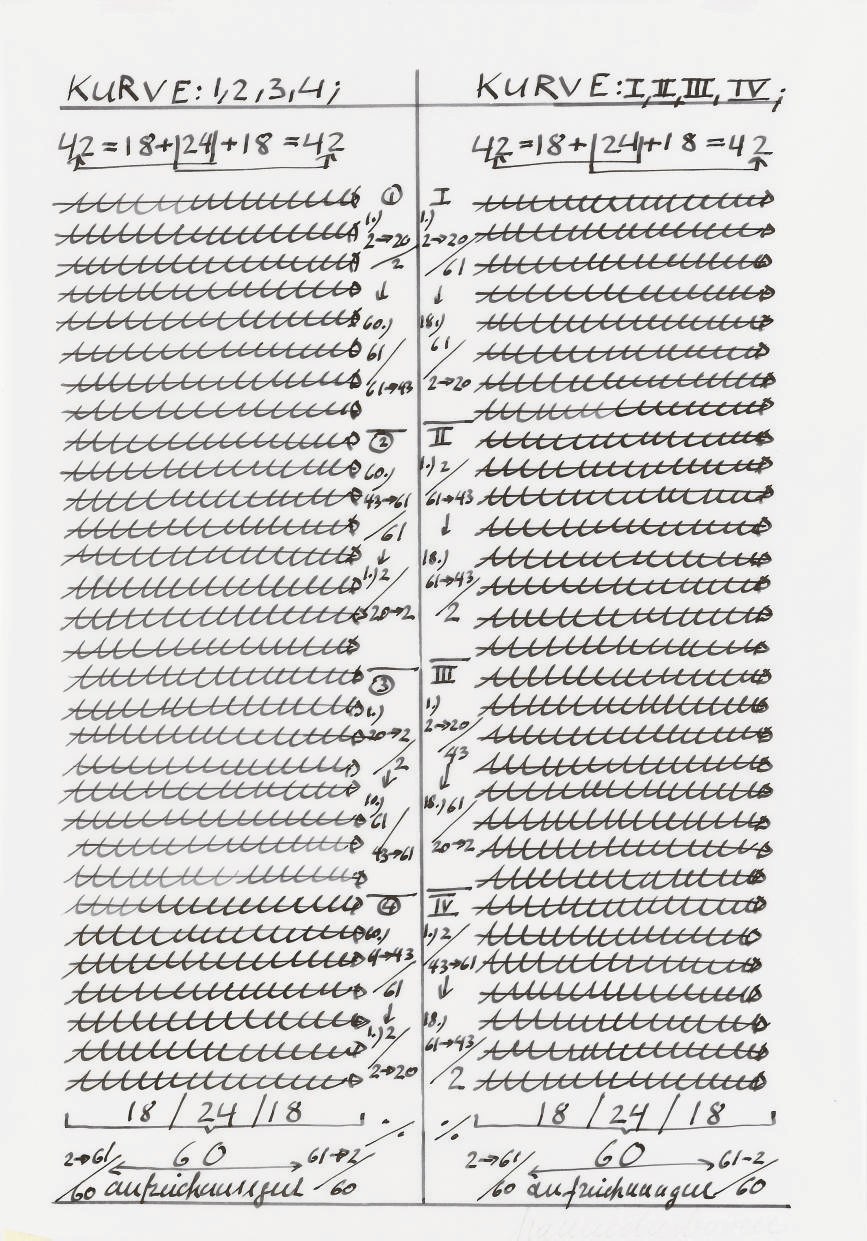 KURVE: 1, 2, 3, 4;
42 = 18 + |24| + 18 = 42
①
1.)
2→20
/ 2
↓
60.)
61 /
61→43
②
60.)
43→61
/ 61
↓
1.) 2 /
20→2
③
1.)
20→2
/ 2
↓
61 /
43→61
④
60.)
61→43
/ 61
↓
1.) 2 /
2→20
18 / 24 / 18
2→61/ 60 61→2/
/60 aufzeichnungen /60
KURVE: I, II, III, IV;
42 = 18 + |24| + 18 = 42
I
1.)
2→20
/ 61
↓
18.)
61 /
2→20
II
1.) 2 /
61→43
↓
18.)
61→43
/ 2
III
1.)
2→20
/ 43
↓
18.) 61 /
20→2
IV
1.) 2 /
43→61
↓
18.)
61→43
/ 2
18 / 24 / 18
2→61/ 60 61-2/
/60 aufzeichnungen /60